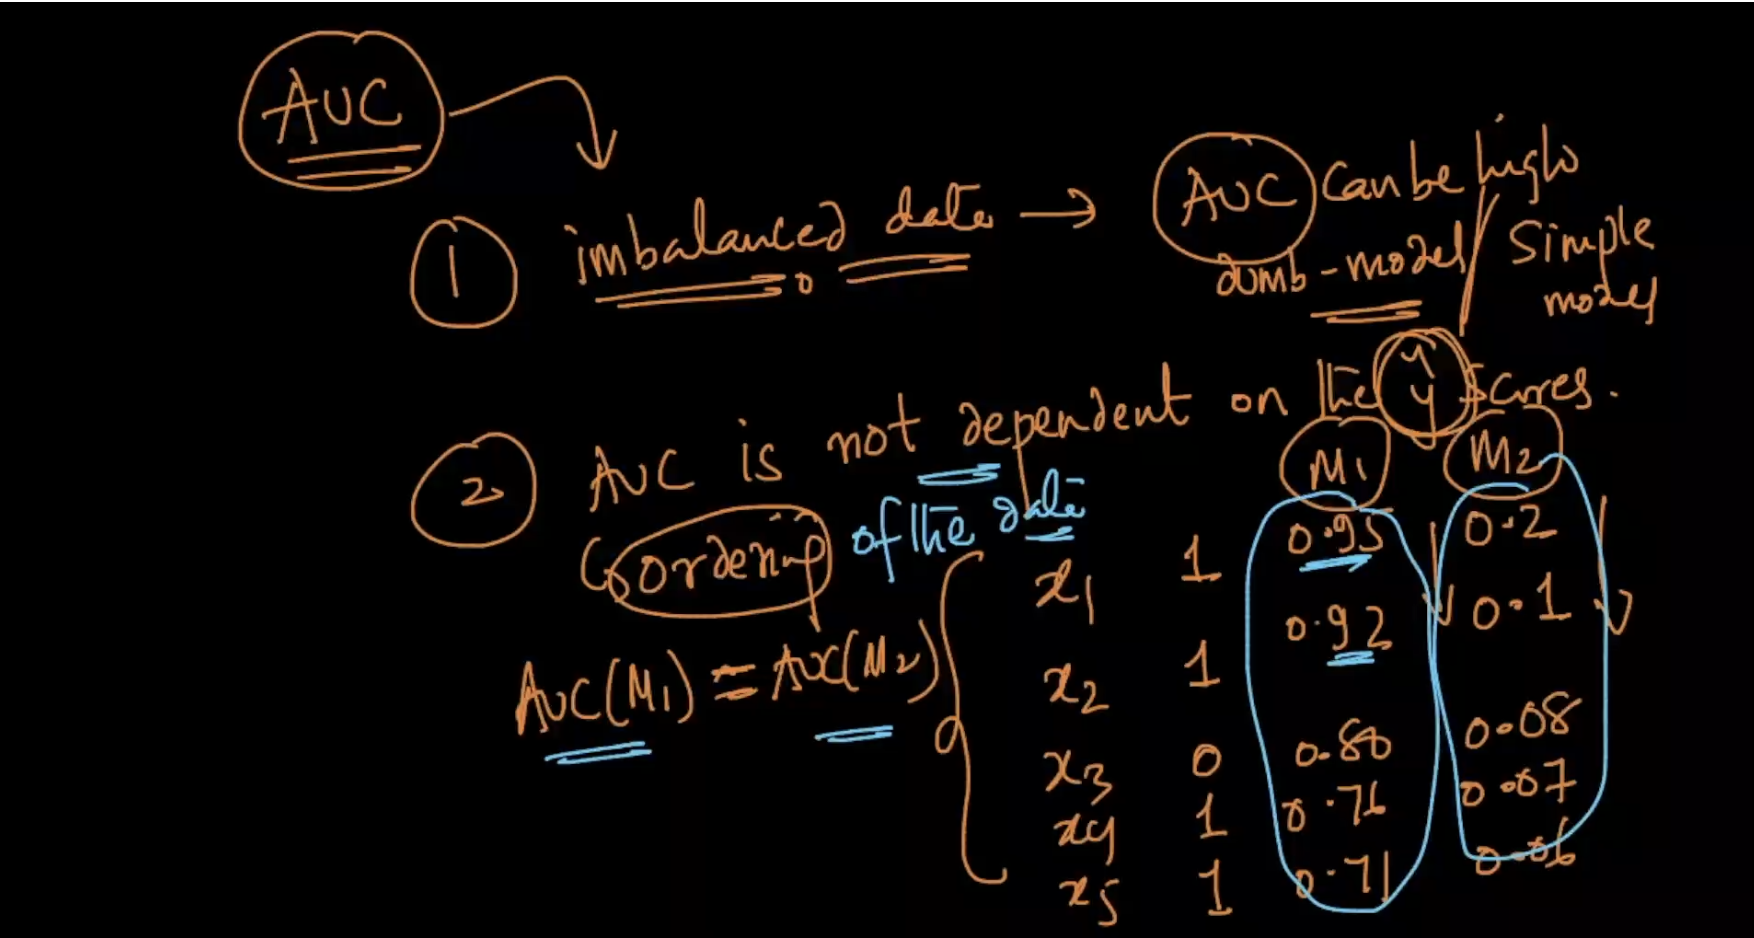 AUC
1 imbalanced data → AUC can be high
dumb-model / Simple model
2 AUC is not dependent on the ŷ scores.
ordering of the data
AUC(M1) = AUC(M2)
M1 M2
x1 1 0.95 0.2
x2 1 0.92 0.1
x3 0 0.80 0.08
x4 1 0.76 0.07
x5 1 0.71 0.06